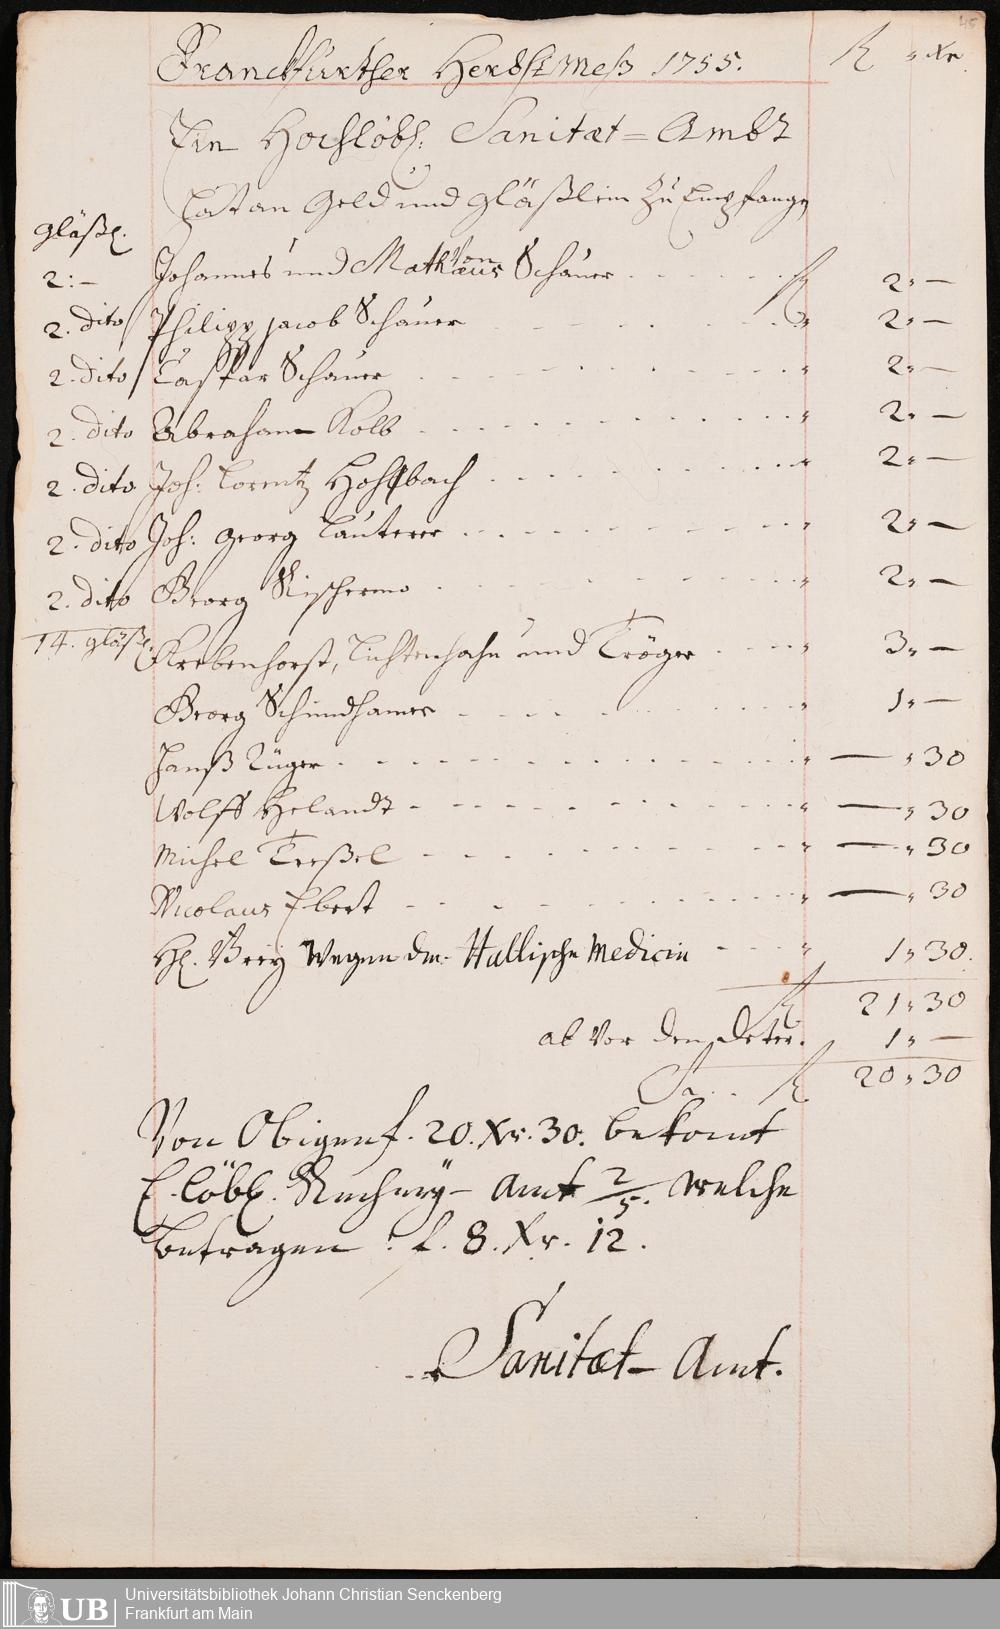 45
Franckfurther Herbst Meß 1755. f. " Xr.
Ein Hochlöbl: Sanitæt-Ambt
hat an Geld und gläßlein zu Empfangen
gläßl.
2:- Johannes und Mathæus Schauer f. 2 " —
von
2. dito Philipp Jacob Schauer " 2 " —
2. dito Caspar Schauer " 2 " —
2. dito Abraham Kolb " 2 " —
2. dito Joh: Lorentz Hohlbach " 2 " —
2. dito Joh: Georg Lauterer " 2 " —
2. dito Georg " 2 " —
14. gläßl. Krebenhorst, Lichtenhahn und Tröger " 3 " —
Georg Schindhamer " 1 " —
Hanß Rüger " — " 30
Wolff Helandt " — " 30
Michel Treßel " — " 30
Nicolaus Ebert " — " 30
H. Wegen der Hallische Medicin " 1 " 30.
f. 21 " 30
ab vor den 1 " —
Sa. f. 20 " 30
Von Obigen f. 20. Xr. 30. bekomt
E. löbl. Rechney-Amt 2/5. welche
betragen: f. 8. Xr. 12.
Sanitæt-Amt.
UB
Universitätsbibliothek Johann Christian Senckenberg
Frankfurt am Main